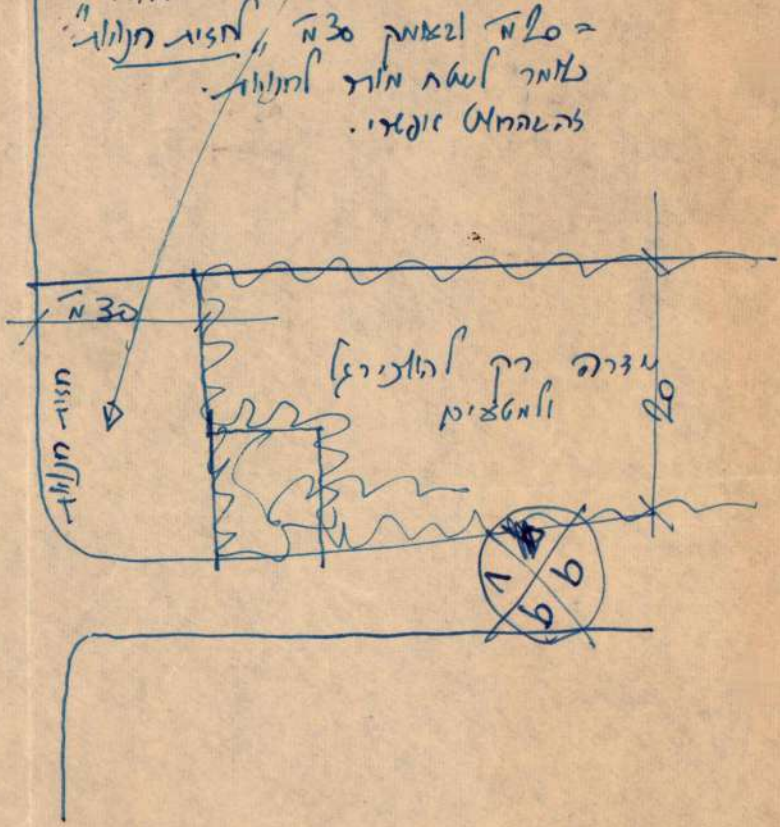 = 20 מ' ובעומק 30 מ' "לחזית חנויות"
כלומר לשטח מותר לחנויות.
זה שהרוחב אפשרי.
30 מ'
חזית חנויות
שדרה רק להולכי רגל
ולמטעים
20
1
6
6